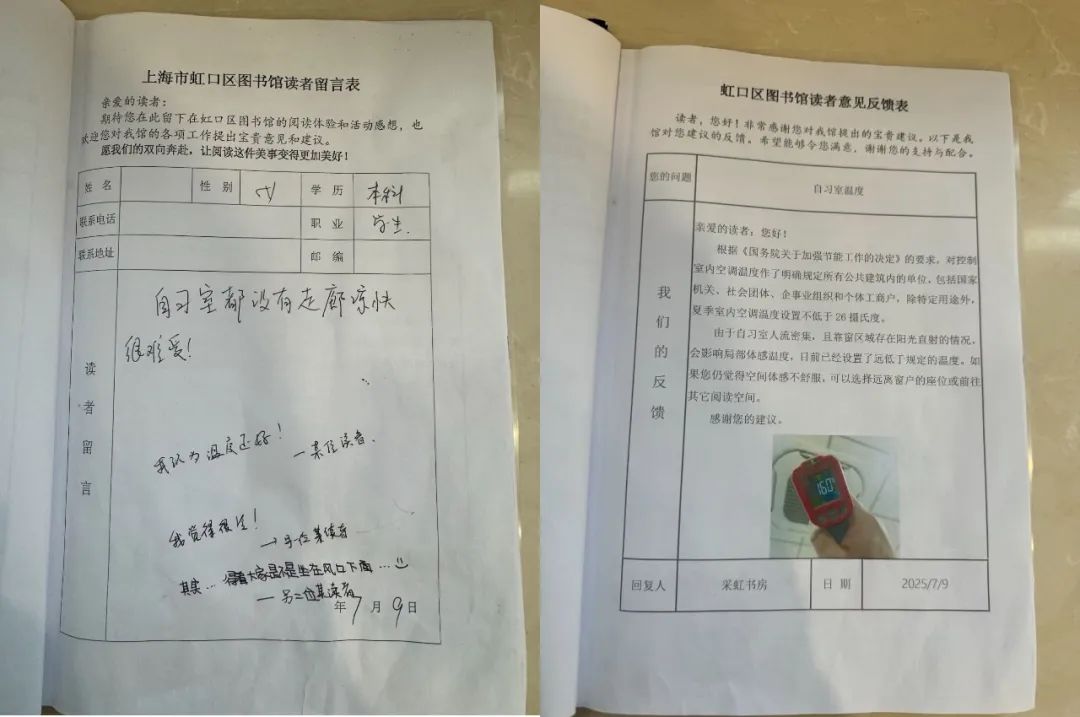 上海市虹口区图书馆读者留言表
亲爱的读者：
期待您在此留下在虹口区图书馆的阅读体验和活动感想，也
欢迎您对我馆的各项工作提出宝贵意见和建议。
愿我们的双向奔赴，让阅读这件美事变得更加美好！
姓 名 性 别 女 学 历 本科
联系电话 职 业 学生.
联系地址 邮 编
读者留言
自习室都没有走廊凉快
很难受！
我认为温度还好！
—某位读者.
我觉得很冷！
→另一位某读者
其实… 得看大家是不是坐在风口下面…
—另二位某读者
年7月9日
虹口区图书馆读者意见反馈表
读者，您好！非常感谢您对我馆提出的宝贵建议。以下是我
馆对您建议的反馈。希望能够令您满意，谢谢您的支持与配合。
您的问题 自习室温度
我们的反馈
亲爱的读者：您好！
根据《国务院关于加强节能工作的决定》的要求，对控制
室内空调温度作了明确规定所有公共建筑内的单位，包括国家
机关、社会团体、企事业组织和个体工商户，除特定用途外，
夏季室内空调温度设置不低于 26 摄氏度。
由于自习室人流密集，且靠窗区域存在阳光直射的情况，
会影响局部体感温度，目前已经设置了远低于规定的温度。如
果您仍觉得空间体感不舒服，可以选择远离窗户的座位或前往
其它阅读空间。
感谢您的建议。
回复人 采虹书房 日 期 2025/7/9